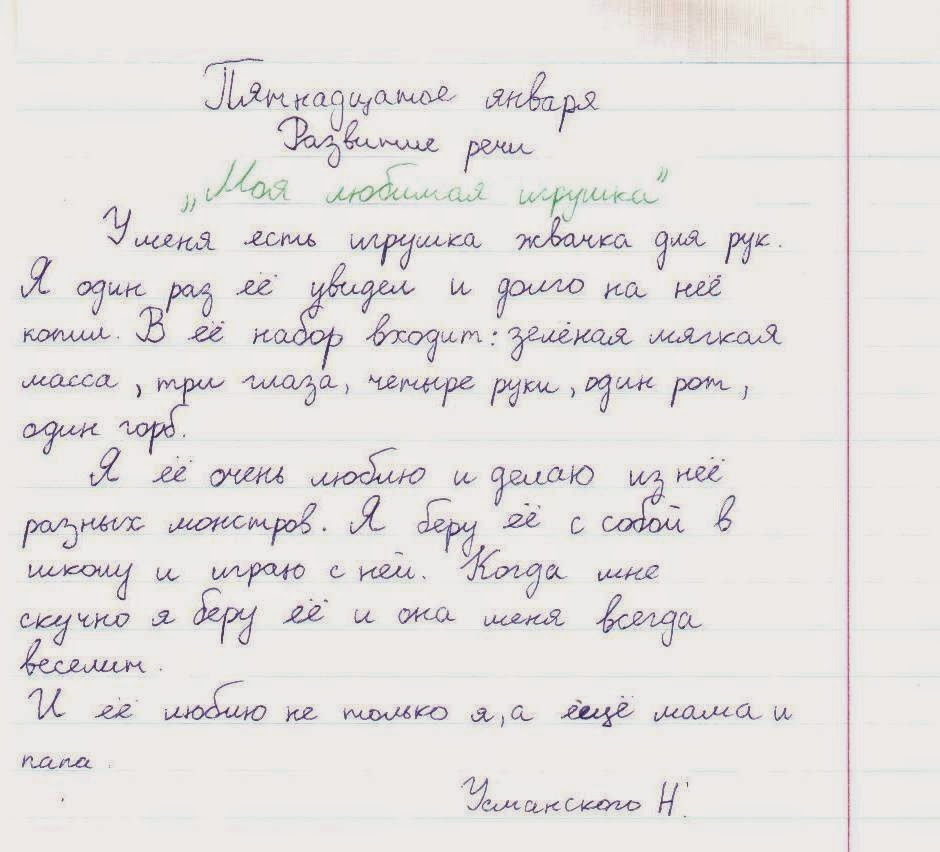 Пятнадцатое января
Развитие речи
„Моя любимая игрушка"
У меня есть игрушка жвачка для рук.
Я один раз её увидел и долго на неё
копил. В её набор входит: зелёная мягкая
масса, три глаза, четыре руки, один рот,
один горб.
Я её очень люблю и делаю из неё
разных монстров. Я беру её с собой в
школу и играю с ней. Когда мне
скучно я беру её и она меня всегда
веселит.
И её люблю не только я, а ещё мама и
папа.
Усманского Н.